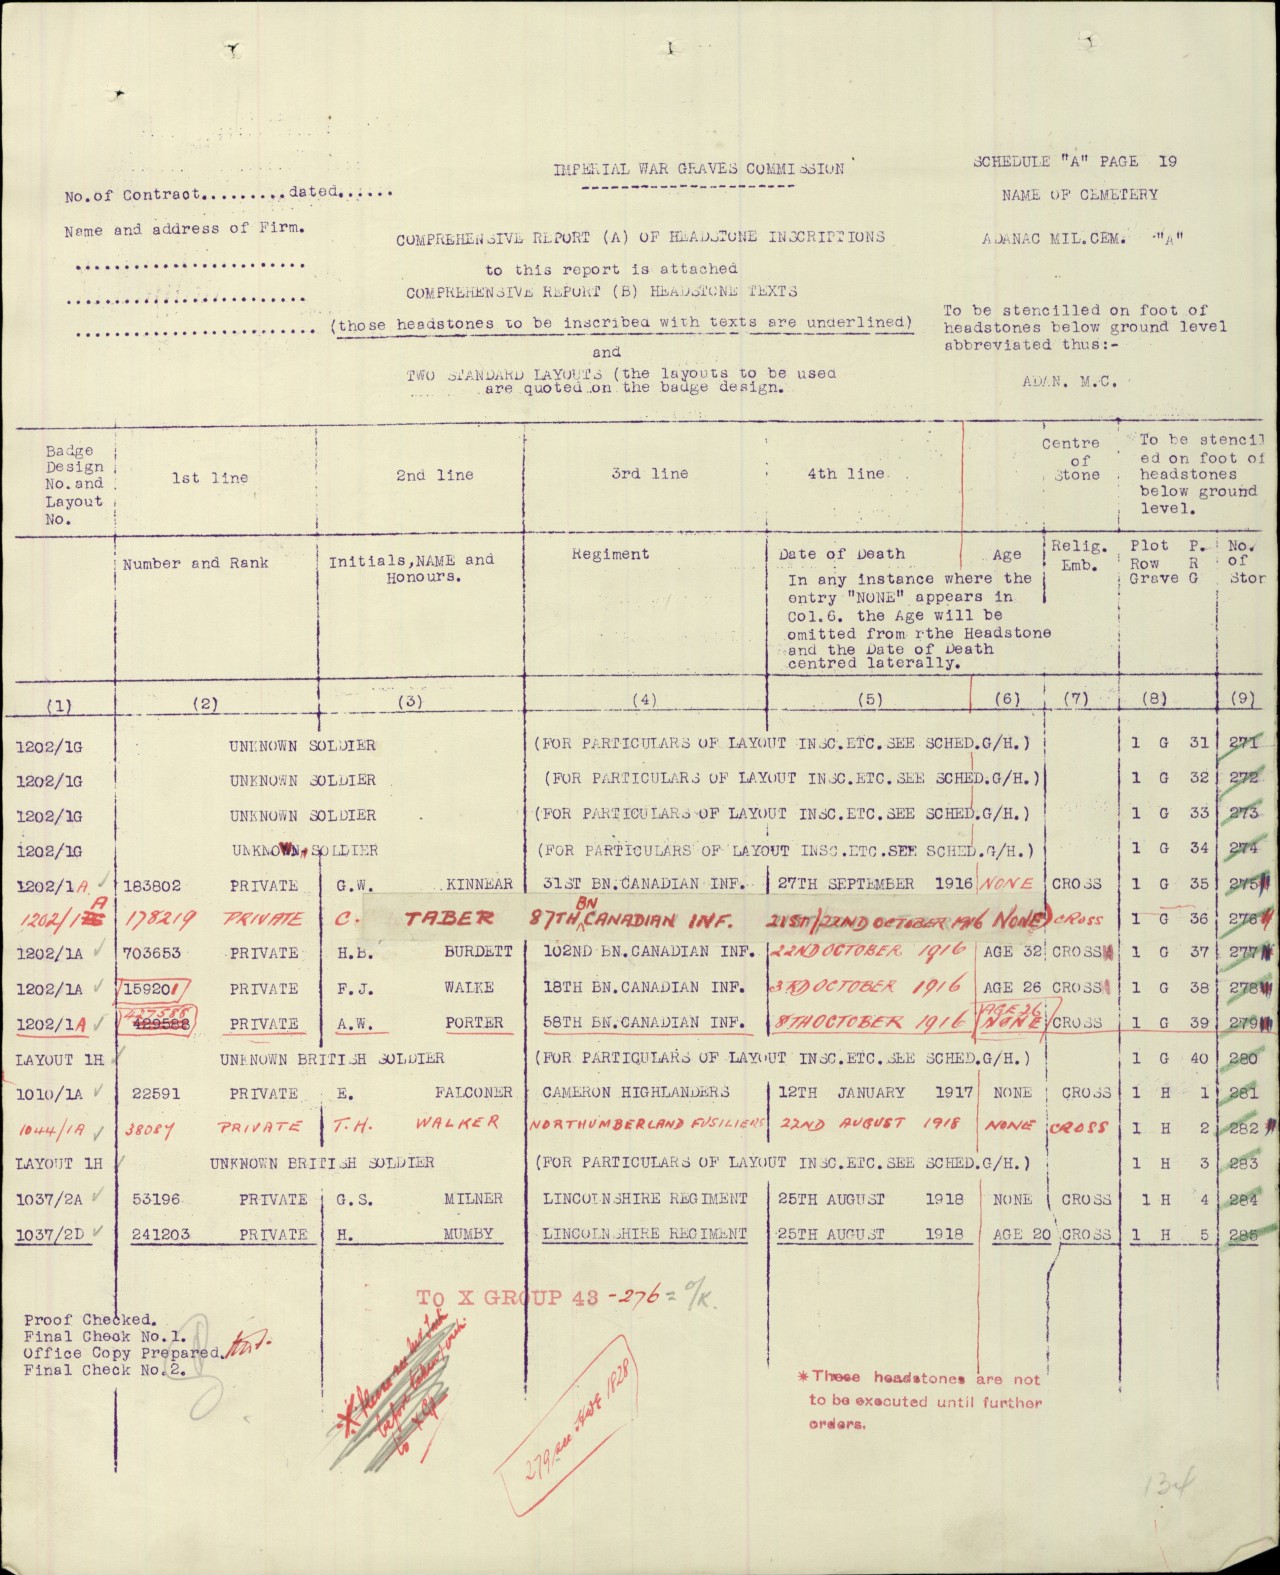 IMPERIAL WAR GRAVES COMMISSION
SCHEDULE "A" PAGE 19
No.of Contract.........dated......
NAME OF CEMETERY
Name and address of Firm.
COMPREHENSIVE REPORT (A) OF HEADSTONE INSCRIPTIONS
ADANAC MIL.CEM. "A"
to this report is attached
COMPREHENSIVE REPORT (B) HEADSTONE TEXTS
(those headstones to be inscribed with texts are underlined)
To be stencilled on foot of
headstones below ground level
abbreviated thus:-
and
TWO STANDARD LAYOUTS (the layouts to be used
are quoted on the badge design.
ADAN. M.C.
Badge
Design
No. and
Layout
No.
1st line
2nd line
3rd line
4th line
Centre
of
Stone
To be stencil
ed on foot of
headstones
below ground
level.
Number and Rank
Initials,NAME and
Honours.
Regiment
Date of Death
Age
In any instance where the
entry "NONE" appears in
Col.6. the Age will be
omitted from rthe Headstone
and the Date of Death
centred laterally.
Relig.
Emb.
Plot P.
Row R
Grave G
No.
of
Stor
(1) (2) (3) (4) (5) (6) (7) (8) (9)
1202/1G UNKNOWN SOLDIER (FOR PARTICULARS OF LAYOUT INSC.ETC.SEE SCHED.G/H.) 1 G 31 271
1202/1G UNKNOWN SOLDIER (FOR PARTICULARS OF LAYOUT INSC.ETC.SEE SCHED.G/H.) 1 G 32 272
1202/1G UNKNOWN SOLDIER (FOR PARTICULARS OF LAYOUT INSC.ETC.SEE SCHED.G/H.) 1 G 33 273
1202/1G UNKNOWN SOLDIER (FOR PARTICULARS OF LAYOUT INSC.ETC.SEE SCHED.G/H.) 1 G 34 274
1202/1A 183802 PRIVATE G.W. KINNEAR 31ST BN.CANADIAN INF. 27TH SEPTEMBER 1916 NONE CROSS 1 G 35 275
1202/1A 178219 PRIVATE C. TABER 87TH BN CANADIAN INF. 21ST/22ND OCTOBER 1916 NONE CROSS 1 G 36 276
1202/1A 703653 PRIVATE H.B. BURDETT 102ND BN.CANADIAN INF. 22ND OCTOBER 1916 AGE 32 CROSS 1 G 37 277
1202/1A 159201 PRIVATE F.J. WALKE 18TH BN.CANADIAN INF. 3RD OCTOBER 1916 AGE 26 CROSS 1 G 38 278
427588 AGE 26
1202/1A 429588 PRIVATE A.W. PORTER 58TH BN.CANADIAN INF. 8TH OCTOBER 1916 NONE CROSS 1 G 39 279
LAYOUT 1H UNKNOWN BRITISH SOLDIER (FOR PARTICULARS OF LAYOUT INSC.ETC.SEE SCHED.G/H.) 1 G 40 280
1010/1A 22591 PRIVATE E. FALCONER CAMERON HIGHLANDERS 12TH JANUARY 1917 NONE CROSS 1 H 1 281
1044/1A 38087 PRIVATE T.H. WALKER NORTHUMBERLAND FUSILIERS 22ND AUGUST 1918 NONE CROSS 1 H 2 282
LAYOUT 1H UNKNOWN BRITISH SOLDIER (FOR PARTICULARS OF LAYOUT INSC.ETC.SEE SCHED.G/H.) 1 H 3 283
1037/2A 53196 PRIVATE G.S. MILNER LINCOLNSHIRE REGIMENT 25TH AUGUST 1918 NONE CROSS 1 H 4 284
1037/2D 241203 PRIVATE H. MUMBY LINCOLNSHIRE REGIMENT 25TH AUGUST 1918 AGE 20 CROSS 1 H 5 285
TO X GROUP 43 -276 = O/K.
Proof Checked.
Final Check No.1.
Office Copy Prepared.
Final Check No.2.
before taken
to X Gp
279 see 1828
*These headstones are not
to be executed until further
orders.
134